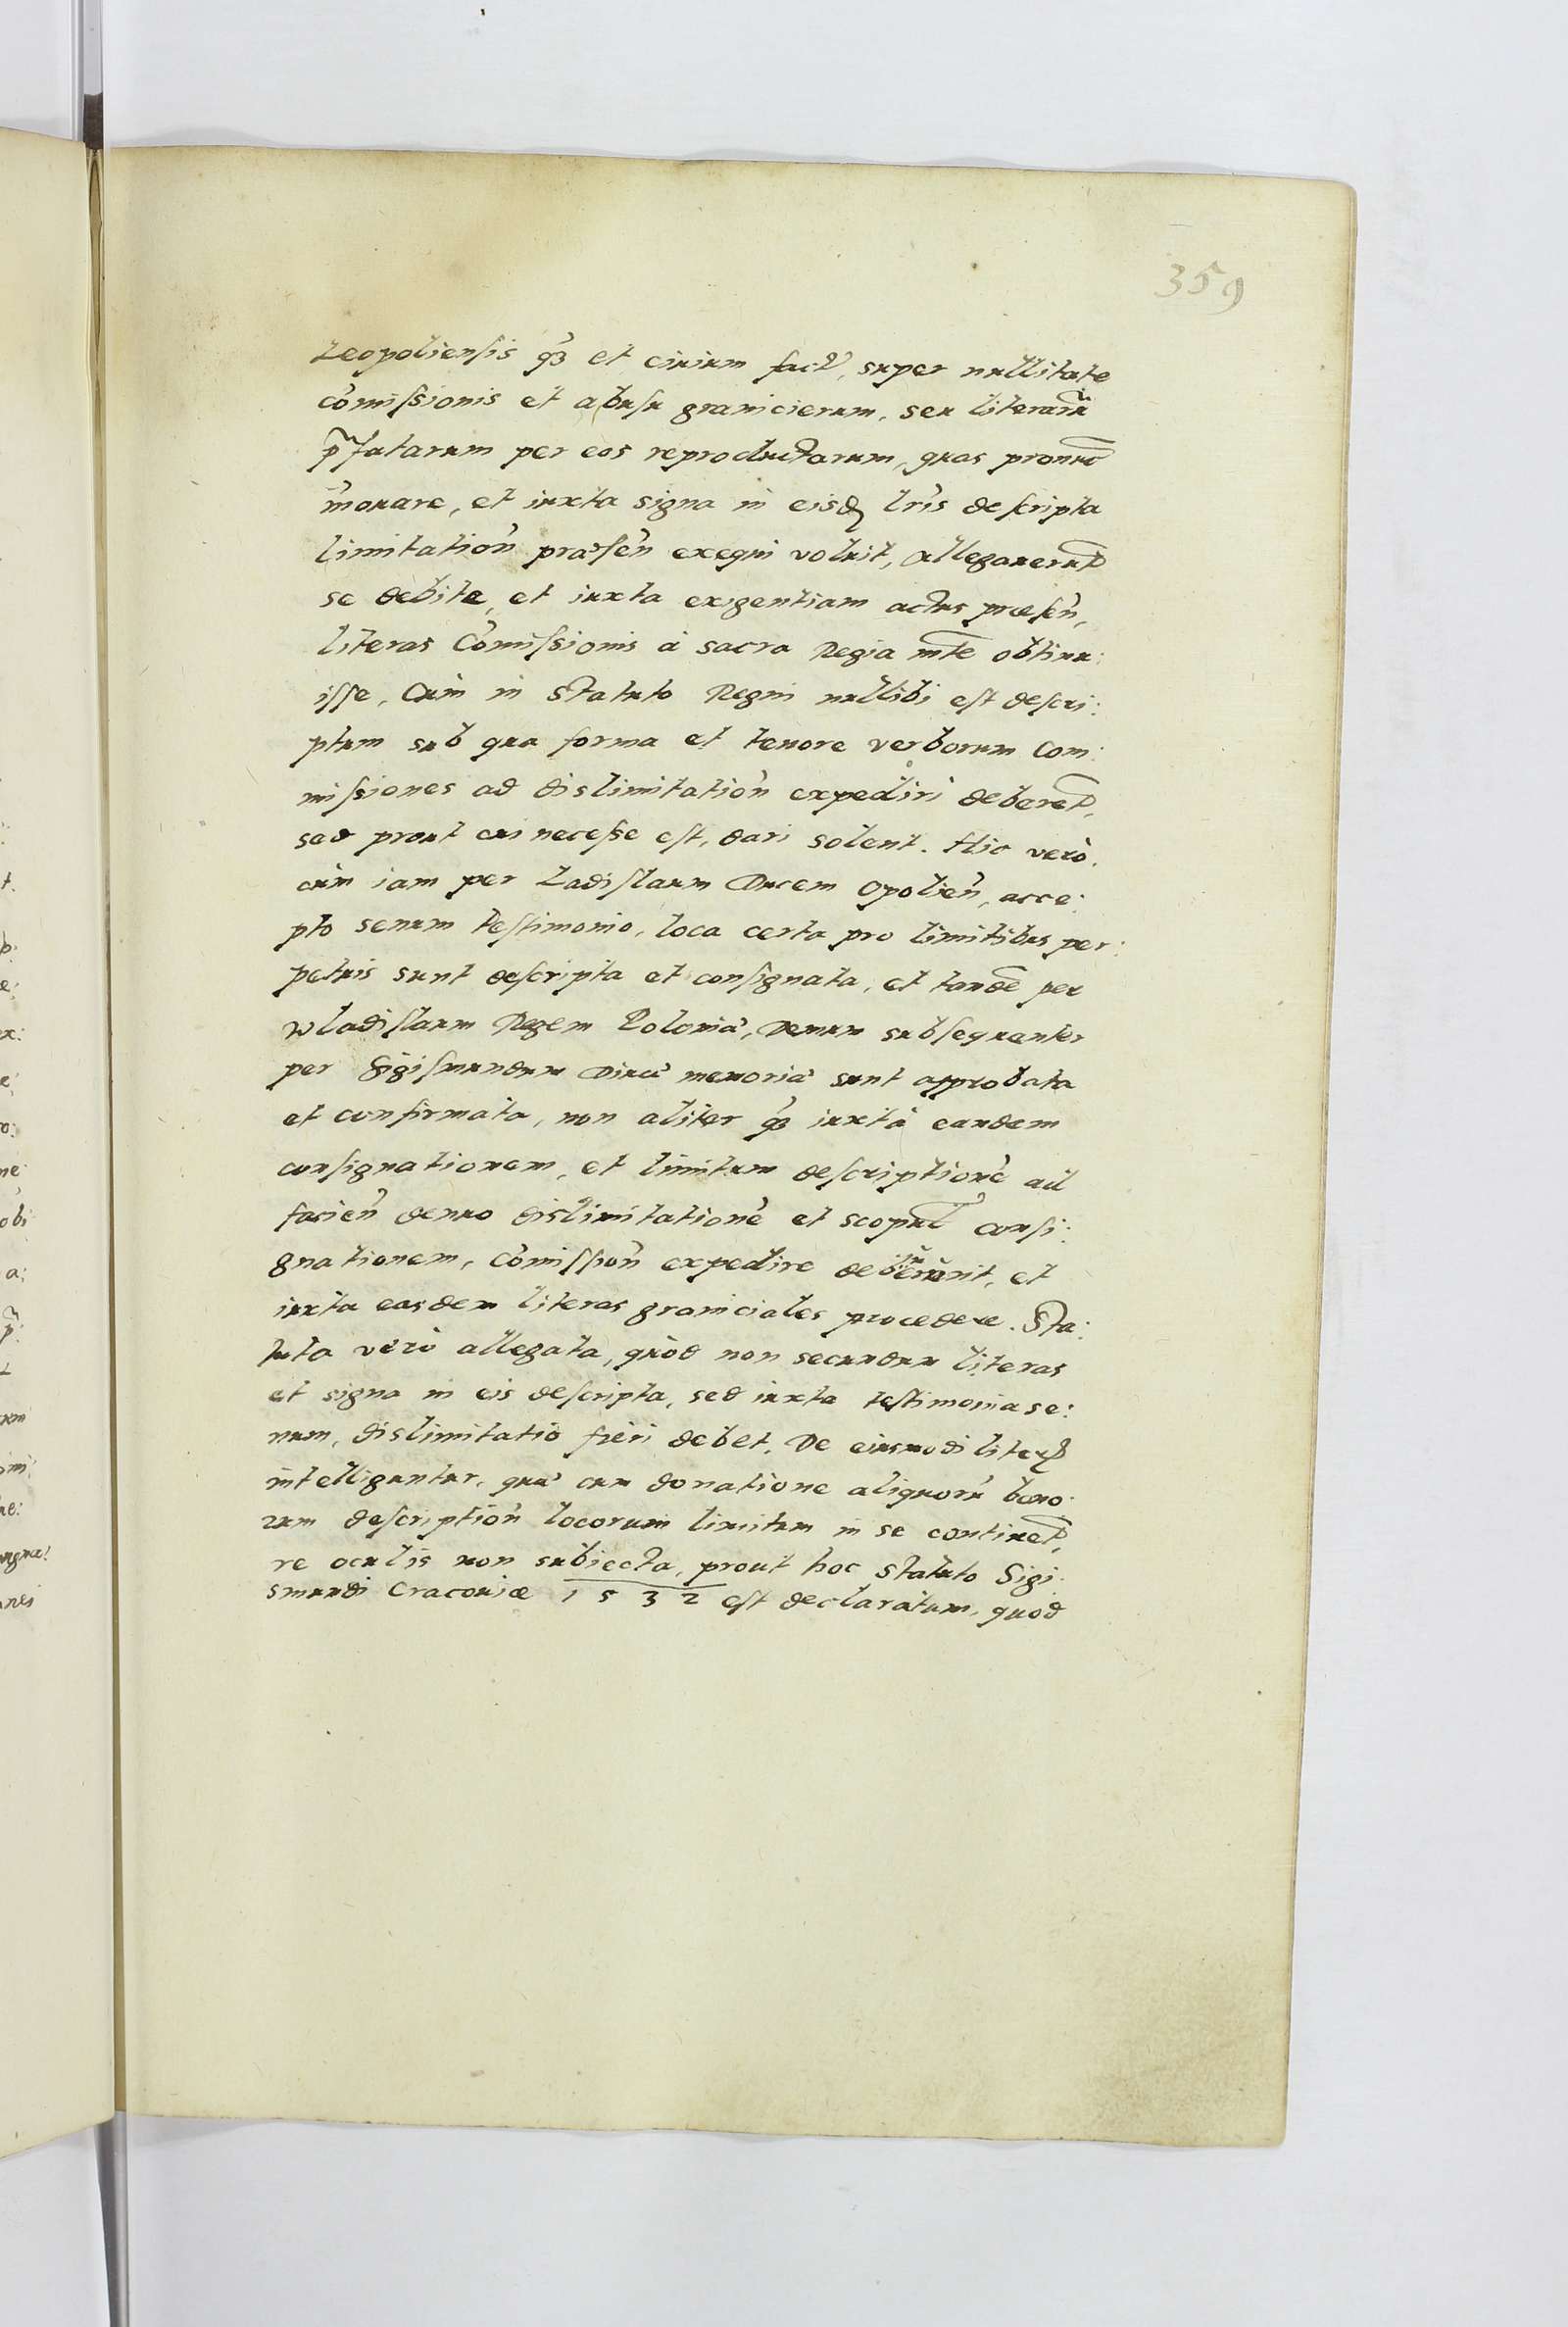 359
Leopoliensis q̃ȝ et ciuium fact̃, super nullitate
cõmissionis et abusu granicierum, seu literarũ
p̃fatarum per eos reproductarum, quas pronuc
ĩnouare, et iuxta signa in eisd lr̃is descripta
limitatioñ præseñ exequi voluit, allegauerut
se debite, et iuxta exigentiam actus præseñ,
literas Cõmissionis à sacra Regia mte obtinu:
isse, Cùm in statuto Regni nullibi est descri:
ptum sub qua forma et tenore verborum Com:
missiones ad dislimitatioñ expediri deberet,
sed prout cui necesse est, dari solent. Hic verò
cùm iam per Ladislaum Ducem Opolieñ, acce:
pto senum testimonio, loca certa pro limitibus per:
petuis sunt descripta et consignata, et tandẽ per
Wladislaum Regem Poloniæ, demum subsequenter
per Sigismundum Diuæ memoriæ sunt approbata
et confirmata, non aliter q̃ȝ iuxtà eandem
consignationem, et limitum descriptionẽ ad
facieñ denuo dislimitationẽ et scopul consi:
gnationem, cõmissioñ expedire debuerunt, et
iuxta easdem literas graniciales procedere. Sta:
tuta verò allegata, quòd non secundum literas
et signa in eis descripta, sed iuxta testimonia se:
num, dislimitatio fieri debet. De eiusmodi literis
intelliguntur, quæ cum donatione aliquorũ bono:
rum descriptioñ locorum limitum in se continet,
re oculis non subiecta, prout hoc statuto Sigi:
smundi Cracouiæ 1532 est declaratum, quod